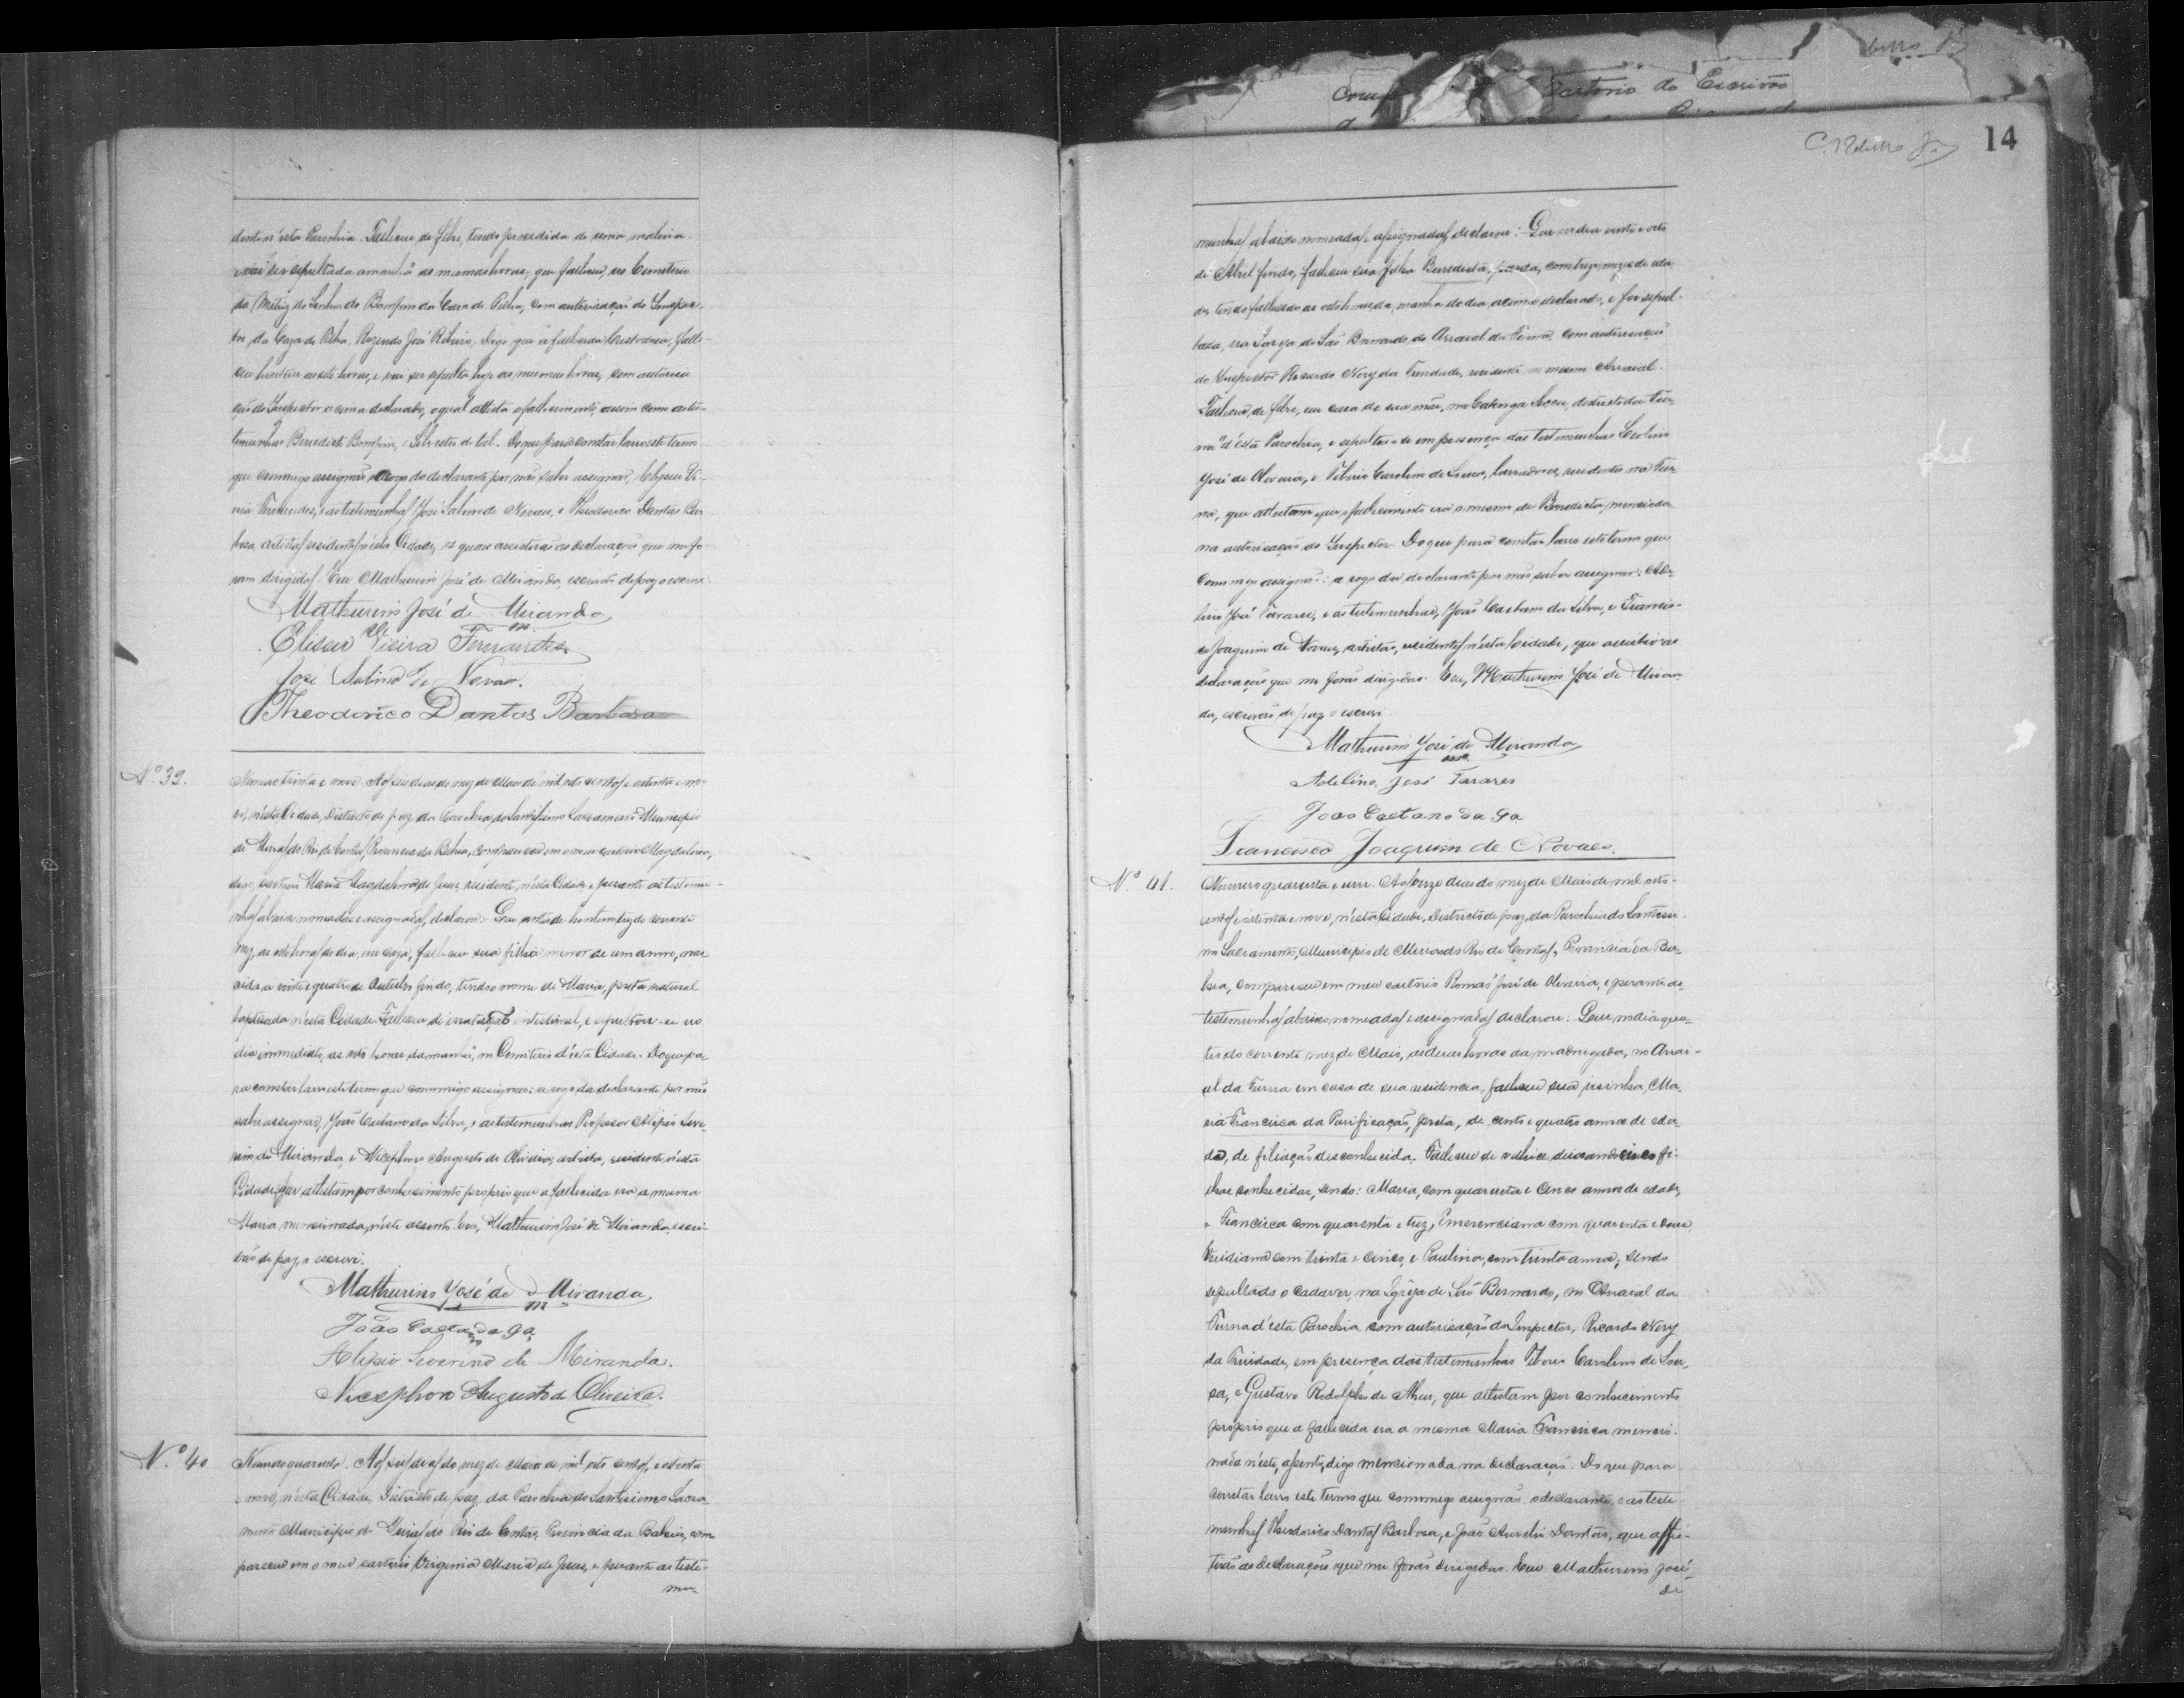 Cartorio do Escrivão
14
dente n'esta Parochia. Falleceu de febre, tendo procedida de uma
vai ser sepultada amanhã as mesmas horas, que falleceu, no Cemiterio
da Matriz do Senhor do Bomfim da Casa de Telha, com autorisação do Inspec-
tor da Caza de Telha, Rozendo José Ribeiro. Digo que a fallecida falle-
ceu hontem as sete horas, e vai ser sepulta hoje as mesmas horas, com autorisa
ção do Inspector acima declarado, o qual attesta o fallecimento, assim como as tes-
temunhas Benedicto Bomfim, e Silvestre de tal. Do que para constar lavro este termo
que commigo assignão a rogo do declarante por não saber assignar, Eliseu Vi-
eira Fernandes, e as testemunhas José Sabino de Novaes, e Theodorico Dantas Bar
boza, artistas residentes n'esta Cidade, os quaes assistirão as declarações que me fo-
ram dirigidas. Eu Mathurino José de Miranda, escrivão de paz o escrevi.
Mathurino José de Miranda
Eliseu Vieira Fernandes
José Sabino de Novaes.
Theodorico Dantas Barboza
Nº 39.
Numero trinta e nove. Aos seis dias do mez de Maio de mil oito centos e setenta e no-
ve, n'esta Cidade, Districto de paz da Parochia do Santissimo Sacramento Municipio
de Minas do Rio de Contas, Provincia da Bahia, compareceu em o meu cartorio Magdalena,
digo, Maria Magdalena de Jesus, residente n'esta Cidade, e perante as testemu-
nhas abaixo nomeadas e assignadas, declarou: Que antes de hontem trez do corrente
mez, as oito horas do dia, em caza, falleceu sua filha menor de um anno, nas
cida a vinte e quatro de Outubro findo, tendo o nome de Maria, preta natural
baptisada n'esta Cidade. Falleceu de irritação intestinal, e sepultou-se no
dia immediato, as oito horas da manhã, no Cemiterio d'esta Cidade. Do que pa-
ra constar lavro este termo que commigo assignão: a rogo da declarante, por não
saber assignar, João Caetano da Silva, e as testemunhas Professor Alipio Seve-
rino de Miranda, e Nicephoro Augusto de Oliveira, artista, residentes n'esta
Cidade, que attestam por conhecimento proprio que a fallecida era a mesma
Maria mencionada n'este assento. Eu, Mathurino José de Miranda, escri-
vão de paz, o escrevi.
Mathurino José de Miranda
João Caetano da Sa
Alipio Severino de Miranda.
Nicephoro Augusto de Oliveira.
Nº 40
Numero quarenta. Aos seis dias do mez de Maio de mil oito centos, e setenta
e nove, n'esta Cidade, Districto de paz da Parochia do Santissimo Sacra-
mento Municipio de Minas do Rio de Contas, Provincia da Bahia, com
pareceu em o meu cartorio Virginia Maria de Jesus, e perante as teste-
mu-
munhas abaixo nomeadas, e assignadas, declarou: Que no dia vinte e oito
de Abril findo, falleceu sua filha Benedicta, parda, com treze mezes de ida
de, tendo fallecido as oito horas da manhã do dia acima declarado, e foi sepul-
tada, na Igreja de São Bernardo, do Arraial da Furna, com autorisação
do Inspector Ricardo Nery da Trindade, residente no mesmo Arraial.
Falleceu, de febre, em casa de sua mãe, na Secca, districto da Fur-
na d'esta Parochia, e sepultou-se em presença das testemunhas
José de Oliveira, e Tiburcio Carolino de Souza, lavradores, residentes na Fur
na, que attestam que o fallecimento era o mesmo de Benedicta, menciona
na autorisação do Inspector. Do que para constar lavro este termo que
commigo assignão: a rogo da declarante por não saber assignar: Ade-
lino José Tavares, e as testemunhas, João Caetano da Silva, e Francis-
co Joaquim de Novaes, artistas, residentes n'esta Cidade, que assistirão as
declarações que me forão dirigidas. Eu, Mathurino José de Miran-
da, escrivão de paz o escrevi.
Mathurino José de Miranda
Adelino José Tavares
João Caetano da Sa
Francisco Joaquim de Novaes.
Nº 41.
Numero quarenta e um. Aos onze dias do mez de Maio de mil oito-
centos e setenta e nove, n'esta Cidade, Districto de paz, da Parochia do Santissi-
mo Sacramento, Municipio de Minas do Rio de Contas, Provincia da Ba-
hia, compareceu em meu cartorio Romão José de Oliveira, e perante as
testemunhas abaixo nomeadas e assignadas declarou: Que no dia qua-
tro do corrente mez de Maio, as duas horas da madrugada, no Arrai-
al da Furna em casa de sua residencia, falleceu sua visinha, Ma-
ria Francisca da Purificação, preta, de cento e quatro annos de ida
de, de filiação desconhecida. Falleceu de velhice deixando cinco fi-
lhos conhecidos, sendo: Maria, com quarenta e cinco annos de idade,
Francisca com quarenta e trez, Emerenciana com quarenta e dous,
Veridiana com trinta e cinco, e Paulina, com trinta annos, sendo
sepultado o cadaver, na Igreja de São Bernardo, no Arraial da
Furna d'esta Parochia, com autorisação do Inspector, Ricardo Nery
da Trindade, em presença das testemunhas Tiburcio Carolino de Sou-
sa, e Gustavo Rodolpho de Abreu, que attestam por conhecimento
proprio que a fallecida era a mesma Maria Francisca mencio-
nada n'este, assento, digo mencionada na declaração. Do que para
constar lavro este termo que commigo assignão o declarante, e as teste-
munhas Theodorico Dantas Barbosa, e João Aurelio Dantas, que assis-
tirão as declarações que me forão dirigidas. Eu Mathurino José
de